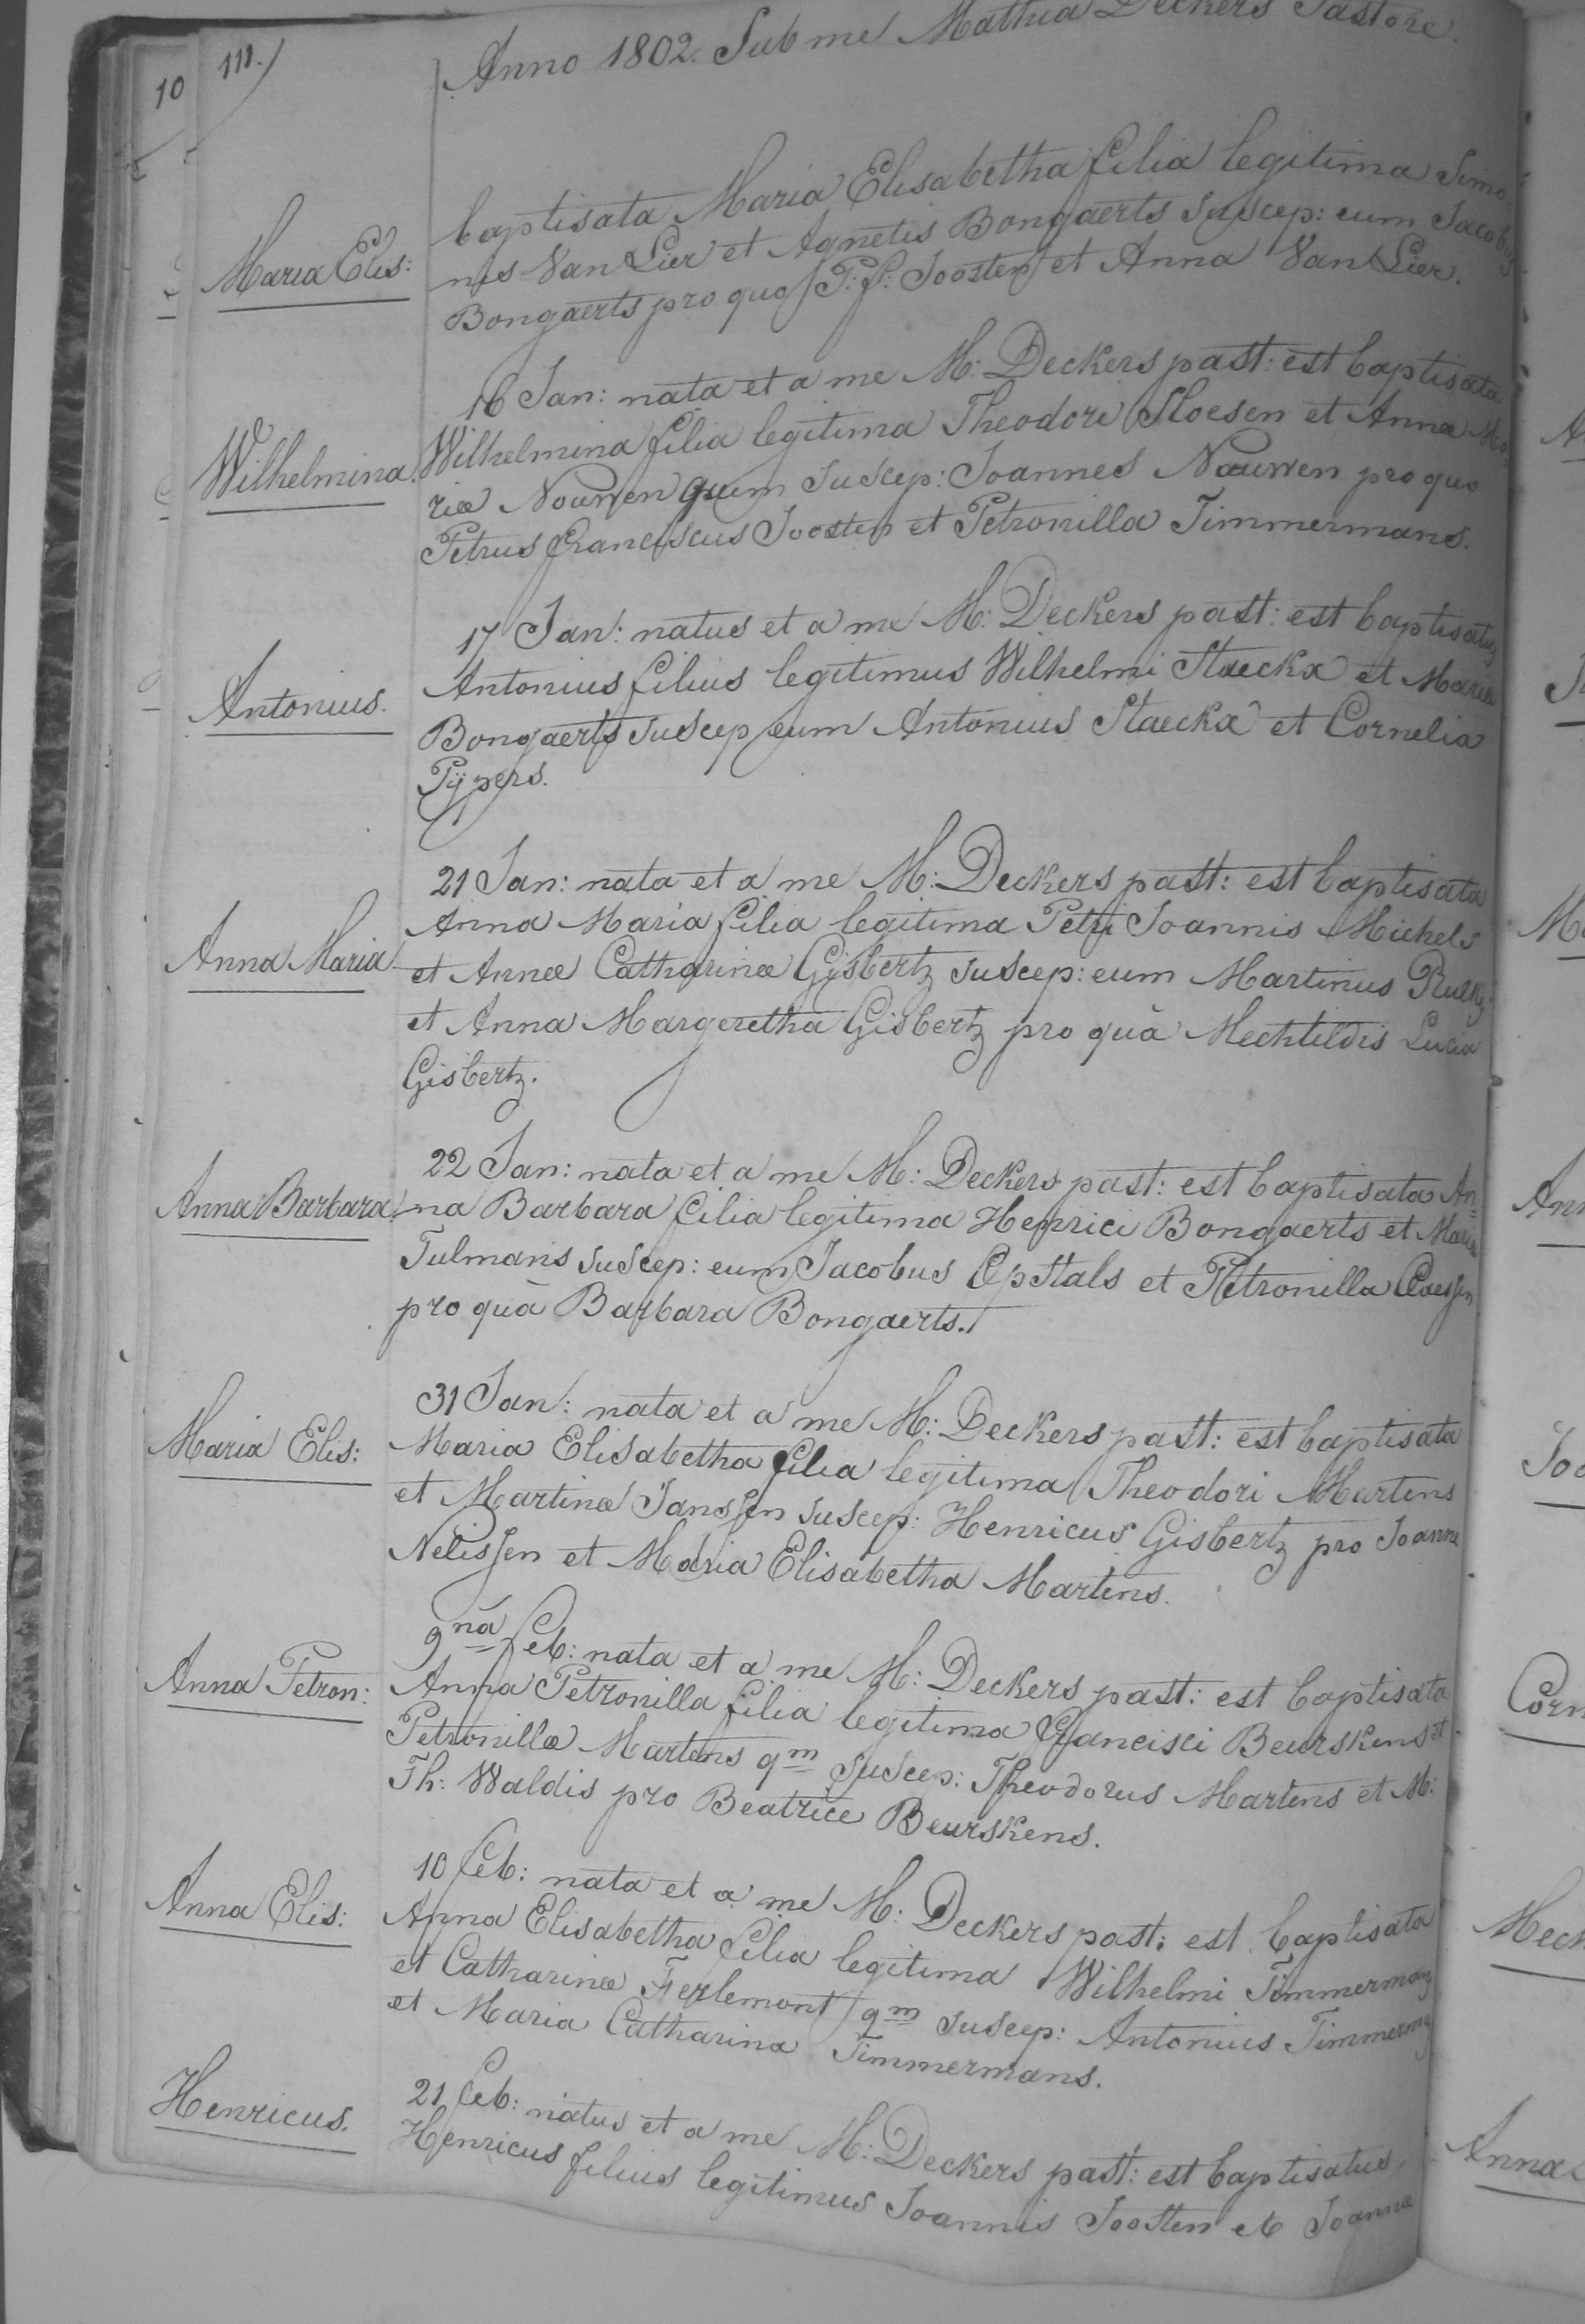 10
111.
Anno 1802. Sub me Mathia Deckers Pastore.
Maria Elis:
baptisata Maria Elisabetha filia legitima Simo-
nis Van Lier et Agnetis Bongaerts suscep: eum Jacobus
Bongaerts pro quo P: f: Joosten et Anna Van Lier.
16 Jan: nata et a me M: Deckers past: est baptisata
Wilhelmina.
Wilhelmina filia legitima Theodori Sloesen et Annæ Ma-
riæ Nouwen quem suscep: Joannes Nouwen pro quo
Petrus Franciscus Joosten et Petronilla Timmermans.
17 Jan: natus et a me M: Deckers past: est baptisatus
Antonius.
Antonius filius legitimus Wilhelmi Staeckx et Mariæ
Bongaerts suscep eum Antonius Staeckx et Cornelia
Pÿpers.
21 Jan: nata et a me M: Deckers past: est baptisata
Anna Maria
Anna Maria filia legitima Petri Joannis Michels
et Annæ Catharinæ Gisbertz suscep: eum Martinus
et Anna Margeretha Gisbertz pro quâ Mechtildis Lucia
Gisbertz.
22 Jan: nata et a me M: Deckers past: est baptisata An-
Anna Barbara.
na Barbara filia legitima Henrici Bongaerts et Mariæ
Tulmans suscep: eum Jacobus Opstals et Petronilla Claessen
pro quâ Barbara Bongaerts.
31 Jan: nata et a me M: Deckers past: est baptisata
Maria Elis:
Maria Elisabetha filia legitima Theodori Martens
et Martinæ Janssen suscep: Henricus Gisbertz pro Joanne
Nelissen et Maria Elisabetha Martens.
9na Feb: nata et a me M: Deckers past: est baptisata
Anna Petron:
Anna Petronilla filia legitima Francisci Beurskens et
Petronillæ Martens qm suscep: Theodorus Martens et M:
Th: Waldis pro Beatrice Beurskens.
10 Feb: nata et a me M: Deckers past: est baptisata
Anna Elis:
Anna Elisabetha filia legitima Wilhelmi Timmermans
et Catharinæ Ferlemont qm suscep: Antonius Timmermans
et Maria Catharina Timmermans.
21 Feb: natus et a me M: Deckers past: est baptisatus
Henricus.
Henricus filius legitimus Joannis Joosten et Joannæ